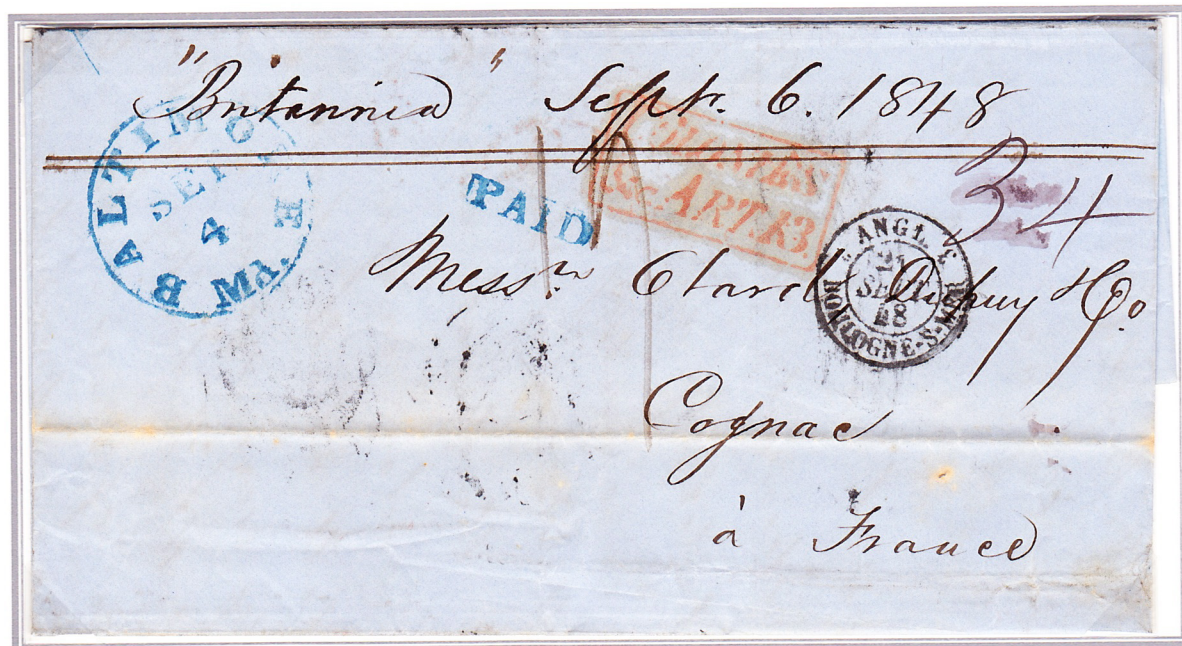 "Britannia" Septr. 6. 1848
BALTIMORE Md.
SEP
4
PAID
COLONIES
&c. ART. 13.
34
ANGL.
2
SEPT
48
BOULOGNE-S-MER
Messrs Otard Dupuy & Co
Cognac
à France